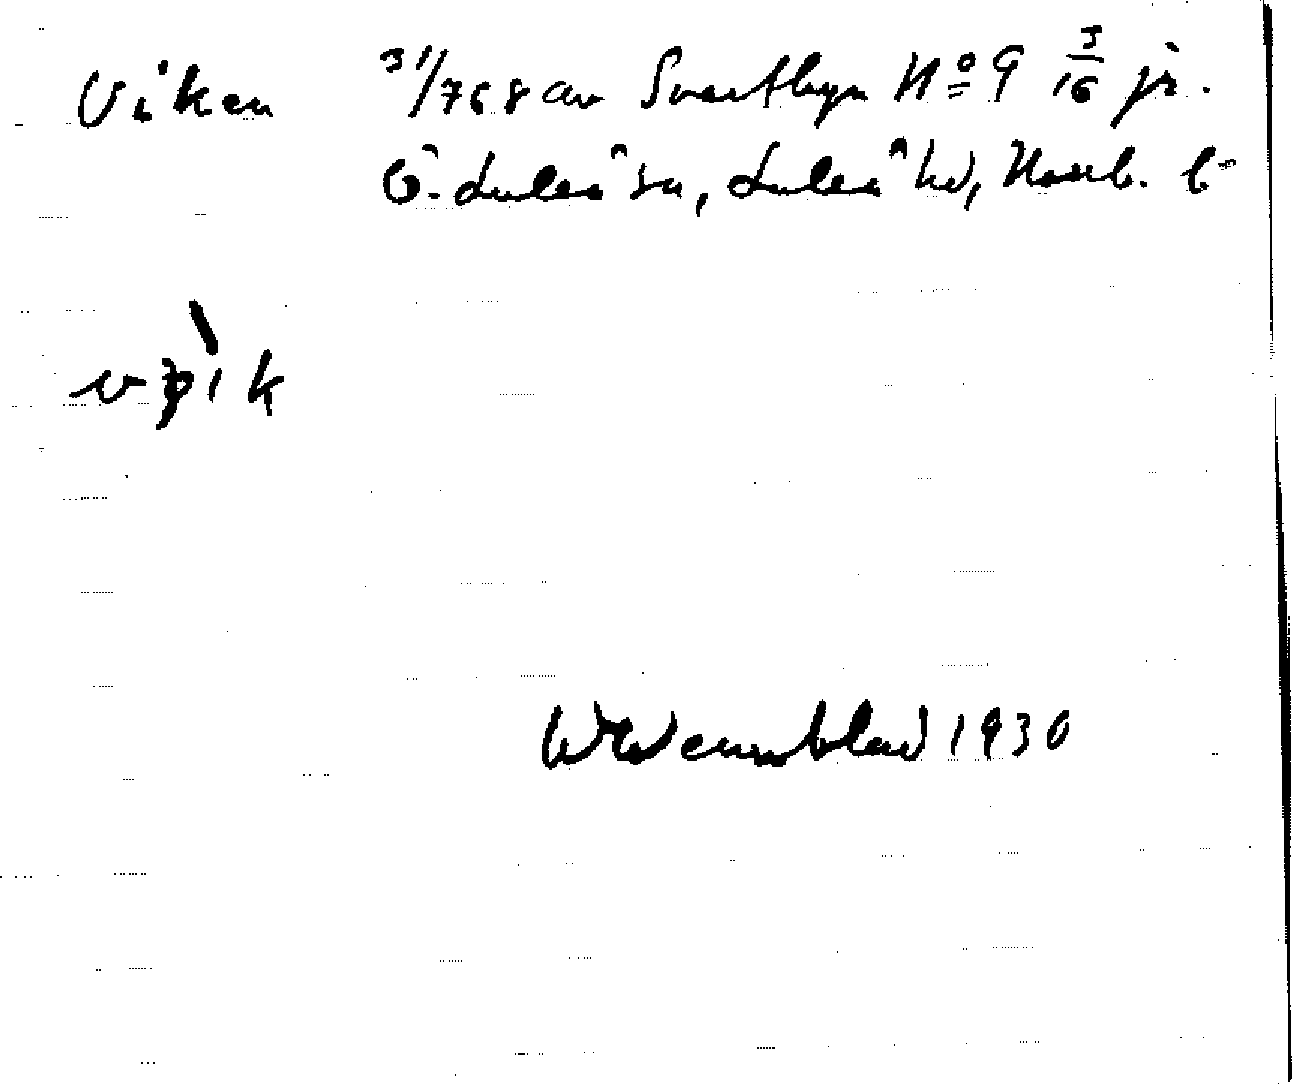 Viken 31/768 av Svartbyn No 9 3/16 jr.
Ö. Luleå sn, Luleå hd, Norrb. l
W Wennblad 1930